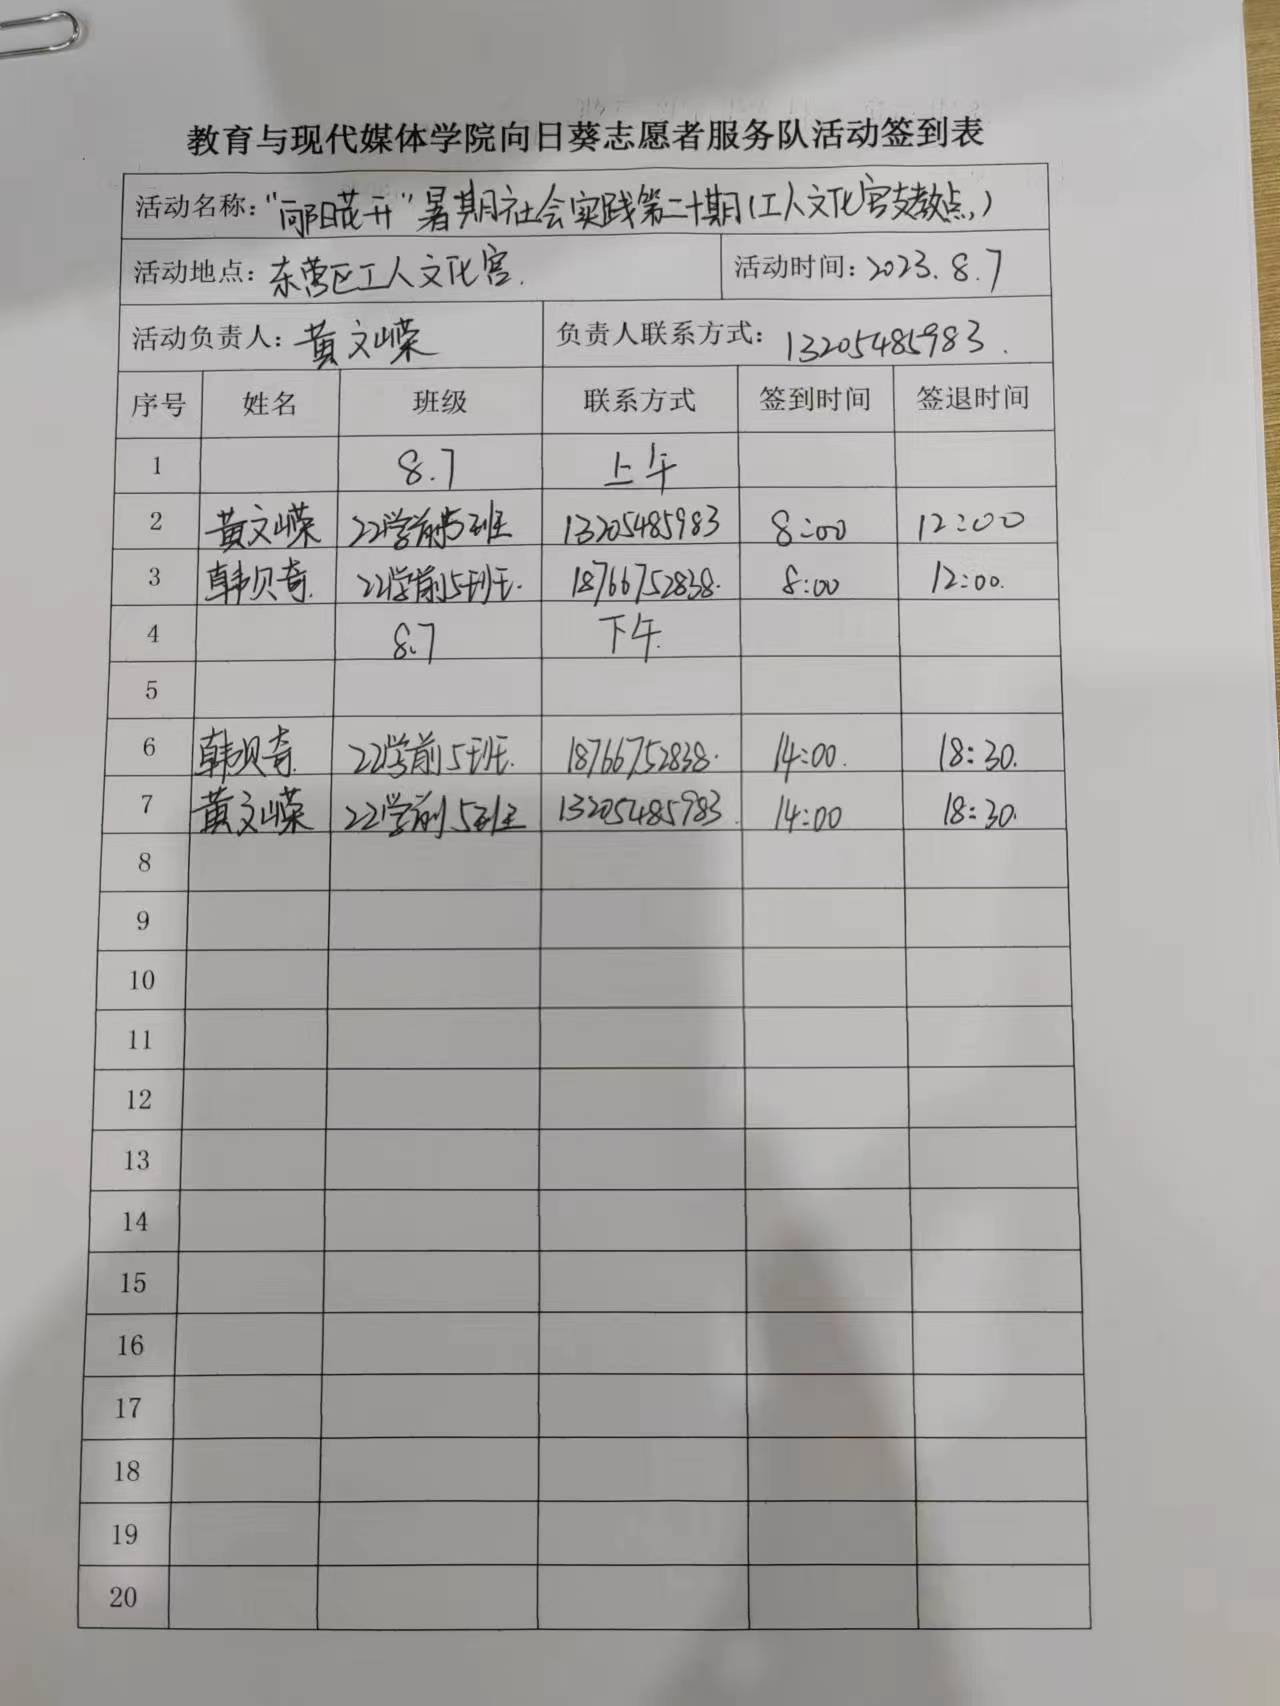 教育与现代媒体学院向日葵志愿者服务队活动签到表
活动名称："向阳花开"暑期社会实践第二十期(工人文化宫支教点)
活动地点：东营区工人文化宫. 活动时间：2023.8.7
活动负责人：黄文嵘 负责人联系方式：13205485983.
序号 姓名 班级 联系方式 签到时间 签退时间
1 8.7 上午
2 黄文嵘 22学前5班 13205485983 8:00 12:00
3 韩贝奇. 22学前5班. 18766752838. 8:00 12:00.
4 8.7 下午.
5
6 韩贝奇. 22学前5班. 18766752838. 14:00. 18:30.
7 黄文嵘 22学前5班 13205485983. 14:00 18:30.
8
9
10
11
12
13
14
15
16
17
18
19
20